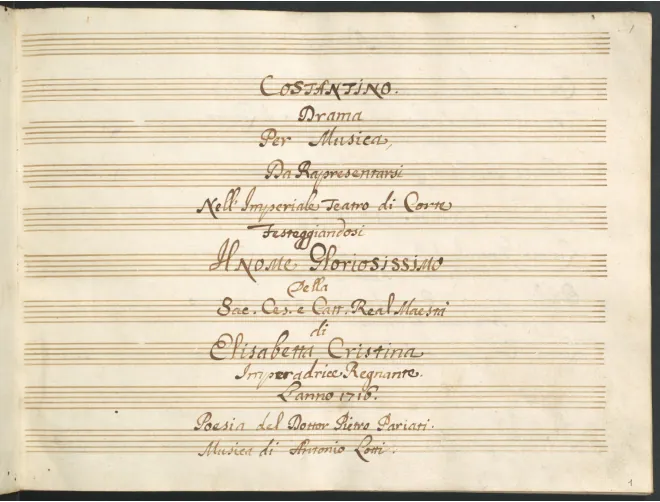 COSTANTINO.
Drama
Per Musica,
Da Rapresentarsi
Nell' Imperiale Teatro di Corte
Festeggiandosi
Il Nome Gloriosissimo
Della
Sac. Ces. e Catt. Real Maestà
di
Elisabetta Cristina
Imperadrice Regnante.
L'anno 1716.
Poesia del Dottor Pietro Pariati.
Musica di Antonio Lotti.
1